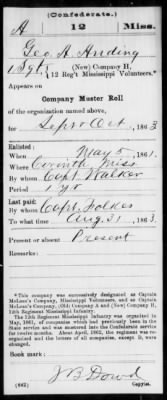 (Confederate.)
A 12 Miss.
Geo. A. Harding
1 Sgt, (New) Company H,
12 Reg't Mississippi Volunteers.*
Appears on
Company Muster Roll
of the organization named above,
for Sept & Oct, 1863
Enlisted:
When May 5, 1861.
Where Corinth Miss
By whom Capt. Walker
Period 1 yr
Last paid:
By whom Capt. Folkes
To what time Aug 31, 1863.
Present or absent Present
Remarks:
*This company was successively designated as Captain
McLean's Company, Mississippi Volunteers, and as Captain
McLean's Company, (Old) Company A and (New) Company H,
12th Regiment Mississippi Infantry.
The 12th Regiment Mississippi Infantry was organized in
May, 1861, of companies which had previously been in the
State service and was mustered into the Confederate service
for twelve months. About April, 1862, the regiment was re-
organized and the letters of all companies, except B, were
changed.
Book mark:
J B Dowd
(642) Copyist.